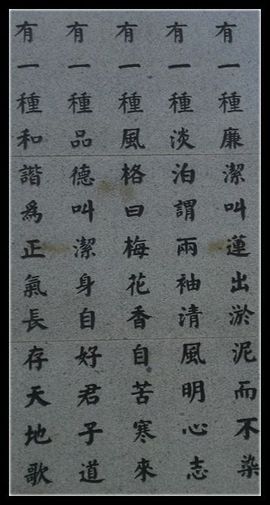 有一種廉潔叫蓮出淤泥而不染
有一種淡泊謂兩袖清風明心志
有一種風格曰梅花香自苦寒來
有一種品德叫潔身自好君子道
有一種和諧為正氣長存天地歌